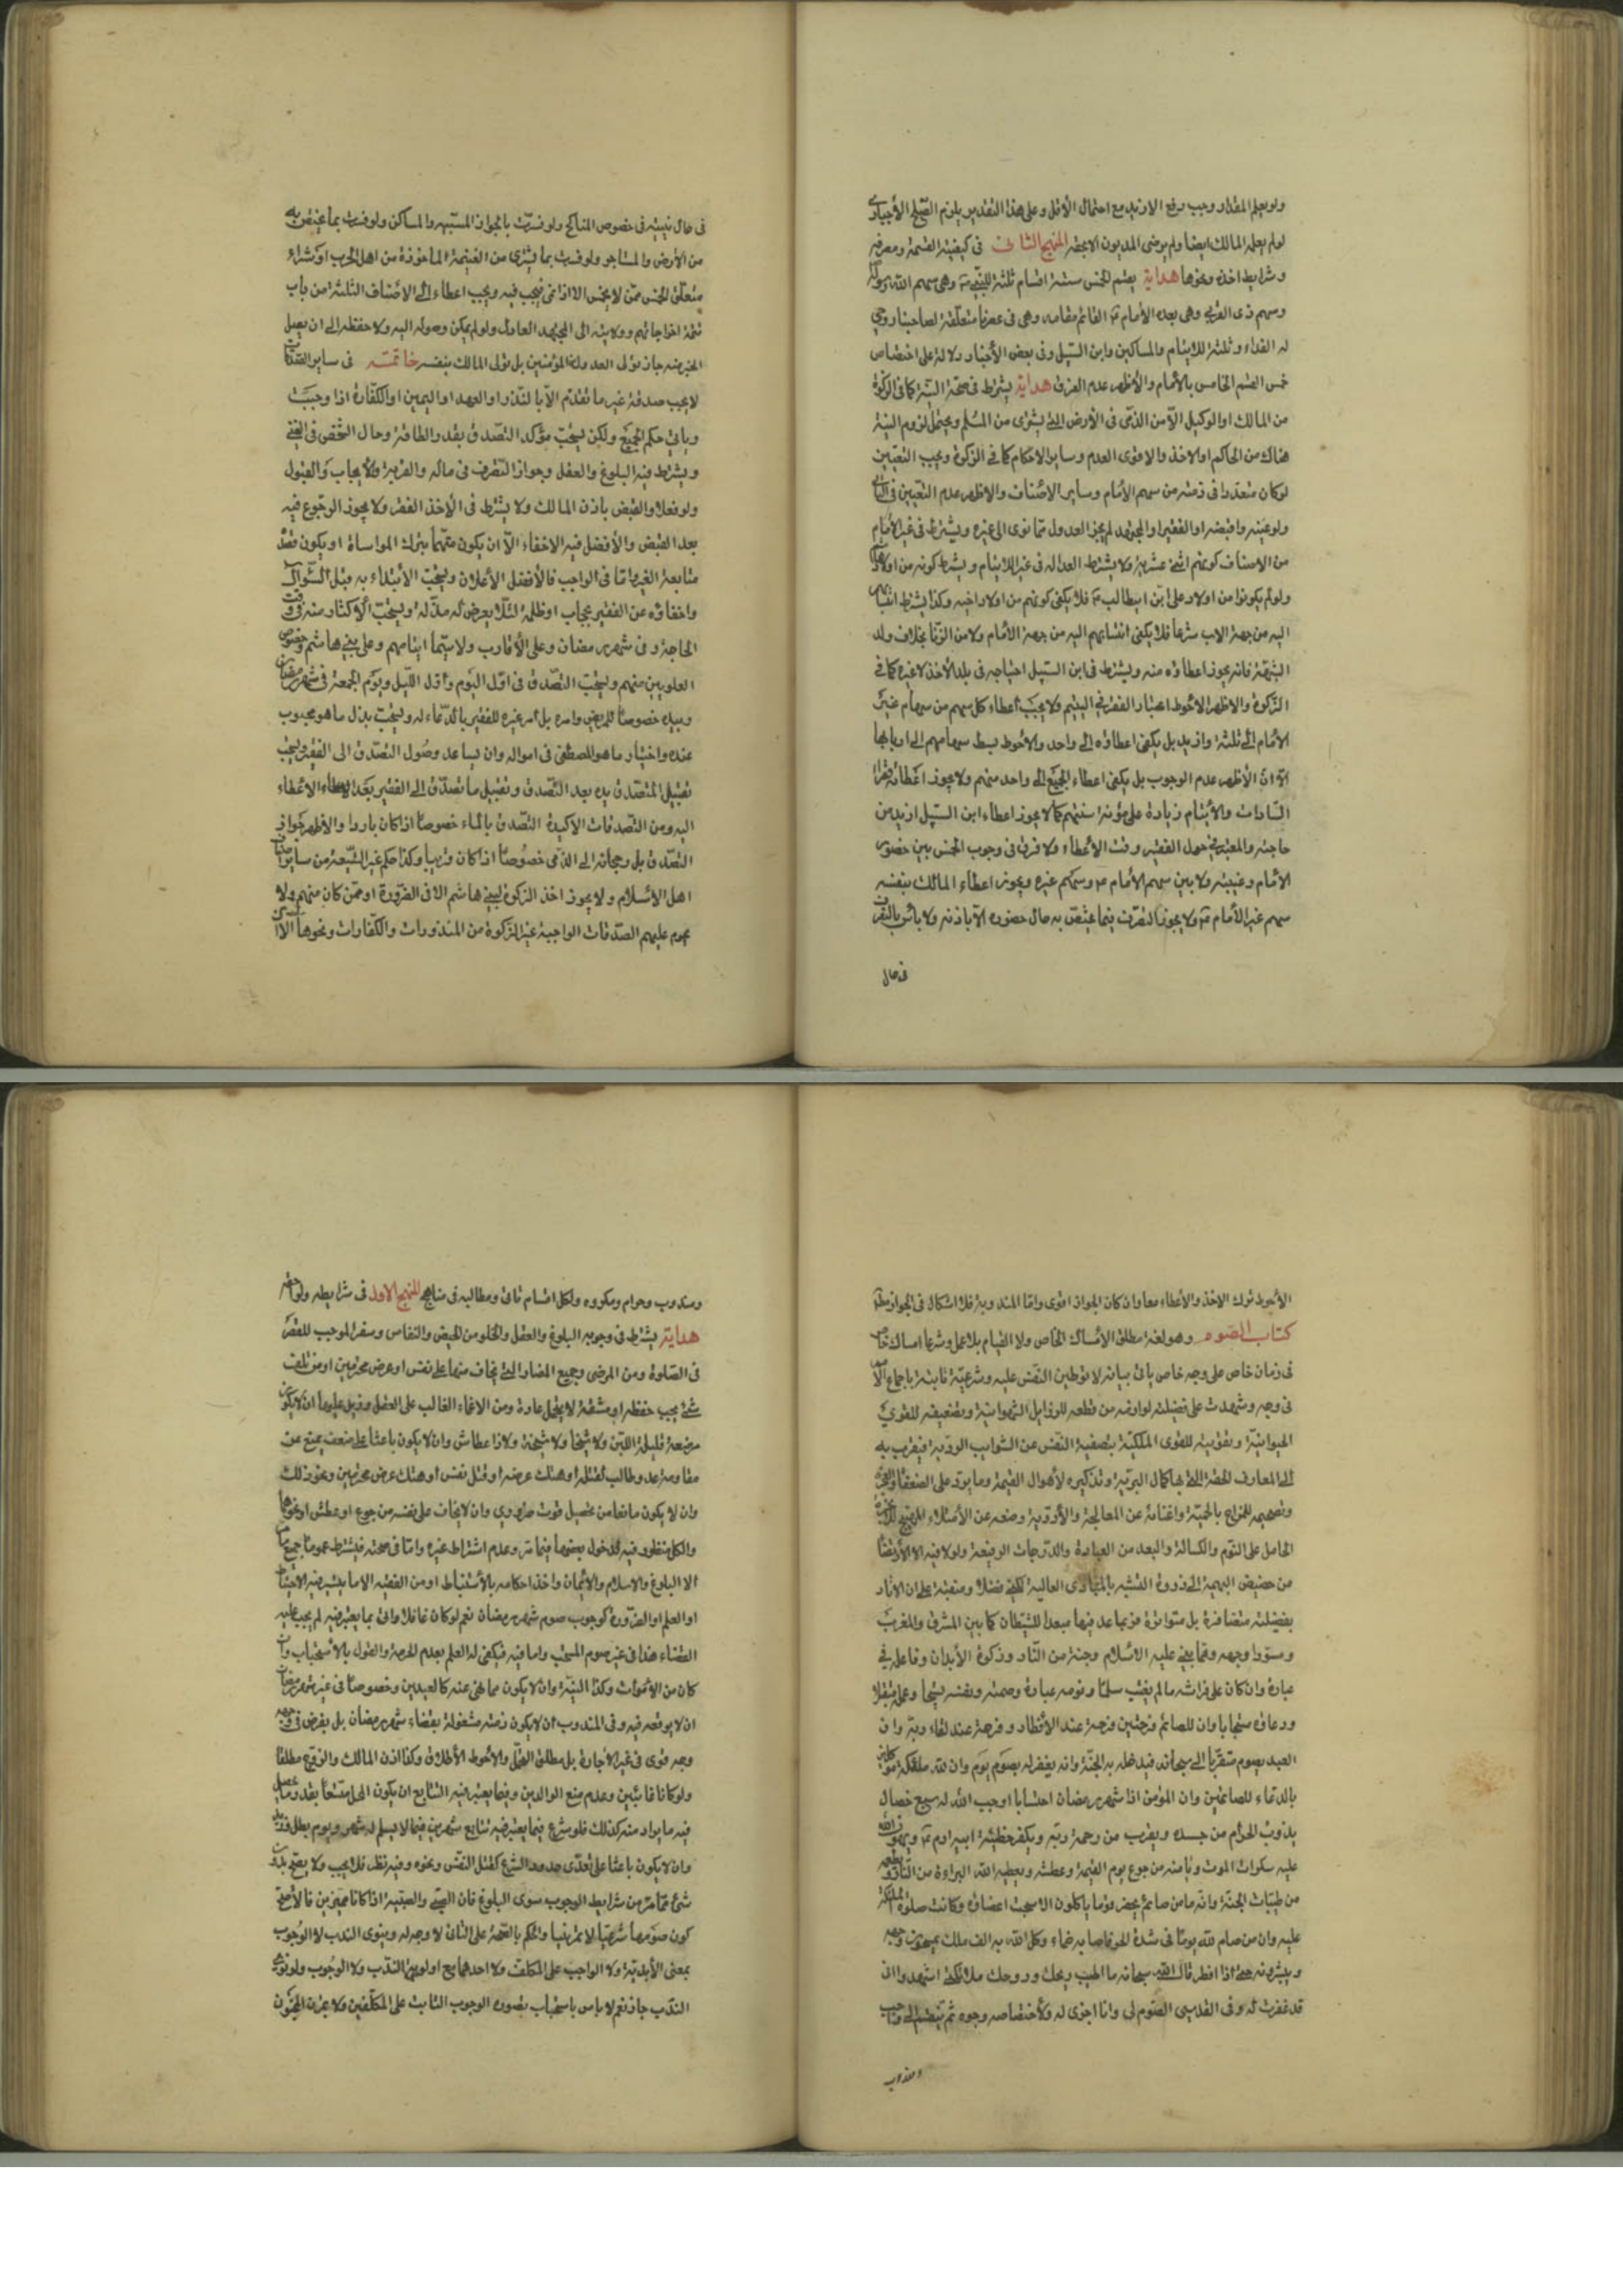 ولو علم المقدار وجب دفع الازيد مع احتمال الأقل وعلى هذا التقدير يلزم الصلح الأجباري
لو لم يعلمه المالك ايضا ولم يرض المديون الا بحقه المنهج الثالث فى كيفية القسمة ومصرفه
وشرايط اخذه ونحوها هداية يقسم الخمس ستة اقسام ثلثة للنبى وهى سهم الله ورسوله
وسهم ذى القربى وهى بعده الأمام القائم مقامه وهى فى عصرنا متعلقة لصاحبنا روحى
له الفداء وثلثة للايتام والمساكين وابن السبيل وفى بعض الأخبار دلالة على اختصاص
خمس القسم الخامس بالأمام والأظهر عدم الفرق هداية يشترط فى صحته النية كما فى الزكوة
من المالك او الوكيل الا من الذمى فى الأرض التى يشترى من المسلم ويحتمل لزوم النية
هناك من الحاكم او الاخذ والاقوى العدم وساير الاحكام كما فى الزكوة ويجب التعيين
لو كان متعددا فى ذمته من سهم الأمام وساير الاصناف والاظهر عدم التعيين فى
ولو عينه واقبضه او الفقير او المجتهد لم يجز العدول عما نوى الى غيره ويشترط فى غير الأمام
من الاصناف كونهم اثنى عشرية ولا يشترط العدالة فى غير الايتام ويشترط كونه من اولاد
ولو لم يكونوا من اولاد على ابن ابيطالب فلا يكفى كونهم من اولاد اخيه وكذا يشترط انتسابهم
اليه من جهة الاب شرعا فلا يكفى انتسابهم اليه من جهة الأم ولا من الزنا بخلاف ولد
الشبهة فانه يجوز اعطاؤه منه ويشترط فى ابن السبيل احتياجه فى بلد الأخذ لا غيره كما فى
الزكوة والاظهر الاحوط اعتبار الفقر فى اليتيم ولا يجب أعطاء كل سهم من سهام غير
الأمام الى ثلثة وازيد بل يكفى اعطاؤه الى واحد والاحوط بسط سهامهم الى اربابها
الا ان الأظهر عدم الوجوب بل يكفى اعطاء الجميع الى واحد منهم ولا يجوز اعطاء فقراء
السادات والأيتام زيادة على مؤنة سنتهم كما لا يجوز اعطاء ابن السبيل ازيد من
حاجته والمعتبر فى حول الفقير وقت الأعطاء ولا فرق فى وجوب الخمس بين حضور
الأمام وغيبته ولا بين سهم الأمام وسهم غيره ويجوز اعطاء المالك بنفسه
سهم غير الأمام ولا يجوز التصرف فيما يختص به حال حضوره الا باذنه ولا بأس بالتصرف
فى حال
فى حال غيبته فى خصوص المناكح ولو فسرت بالجوار المسبية والمساكن ولو فسرت بما يختص به
من الأرض والمتاجر ولو فسرت بما يشترى من الغنيمة المأخوذة من اهل الحرب او كشراء
متعلق الخمس ممن لا يخمس الا اذا نمى فيجب فيه ويجب اعطاء الى الاصناف الثلثة من باب
تتمة اخراجاتهم وولايته الى المجتهد العادل ولو لم يمكن وصوله اليه ولا حفظه الى ان يصل
الخبر منه جاز تولى العدول المؤمنين بل تولى المالك بنفسه خاتمة فى ساير الصدقات
لا يجب صدقة غير ما تقدم الا بالنذر او العهد او اليمين او الكفارة اذا وجبت
وياتى حكم الجميع ولكن يستحب مؤكدا التصدق بقدر الطاقة وحال الشخص فى الغنى
ويشترط فيه البلوغ والعقل وجواز التصرف فى ماله والقربة والأيجاب والقبول
ولو فعلا والقبض باذن المالك ولا يشترط فى الأخذ الفقر ولا يجوز الرجوع فيه
بعد القبض والأفضل فيه الاخفاء الا ان يكون متهما بترك المواساة او يكون قصد
متابعة الغير واما فى الواجب فالأفضل الأعلان ويستحب الأبتداء به قبل السؤال
واخفاؤه عن الفقير بحجاب او ظلمة لئلا يعرض له مذلة ويستحب الاكثار منه فى وقت
الحاجة وفى شهر رمضان وعلى الأقارب ولا سيما ايتامهم وعلى بنى هاشم وخصوص
العلويين منهم ويستحب التصدق فى اول اليوم واول الليل ويوم الجمعة فى شهر رمضان
وبيده خصوصا للمريض وامره بل امر غيره للفقير بالدعاء له ويستحب بذل ما هو محبوب
عنده واختيار ما هو المصطفى فى امواله وان يساعد وصول التصدق الى الفقير ويستحب
تقبيل المتصدق يده بعد التصدق وتقبيل ما تصدق الى الفقير بعد الاعطاء
اليه ومن التصدقات الاكيدة التصدق بالماء خصوصا اذا كان باردا والأظهر جواز
التصدق بل رجحانه الى الذمى خصوصا اذا كان قريبا وكذا حكم غير الشيعة من ساير
اهل الاسلام ولا يجوز اخذ الزكوة لبنى هاشم الا فى الضرورة او ممن كان منهم ولا
يحرم عليهم الصدقات الواجبة غير الزكوة من المنذورات والكفارات ونحوها الا ان
الأحوط ترك الاخذ والأعطاء معا وان كان الجواز اقوى واما المندوبة فلا اشكال فى الجواز مطلقا
كتاب الصوم وهو لغة مطلق الأمساك الخاص ولا القيام بلا عمل وشرعا امساك خاص
فى زمان خاص على وجه خاص ياتى بيانه لا توطين النفس عليه وشرعيته ثابتة باجماع
فى وجه وشهدت على فضيلته لوازمه من قطعه للرذايل الشهوانية وتضعيفه للقوى
الحيوانية وتقويته للقوى الملكية بتصفية النفس عن الشوايب الردية فيقرب به
الى المعارف الحقة التى بها كمال البرية وتذكيره لأهوال القيمة وما يرد على الضعفاء
وتصحيحه للمزاج بالحمية واغنائه عن المعالجة والأودية ومنعه عن الأمتلاء المهيج
الحامل على النوم والكسالة والبعد من العبادة والدرجات الرفيعة ولو لا فيه الا الأرتقاء
من حضيض البهيمية الى ذروة التشبه العالية لكفى فضلا ومنقبة على ان الاثار
بفضيلته متضافرة بل متواترة فربما عد فيها مبعدا للشيطان كما بين المشرق والمغرب
ومسودا وجهه ومما بنى عليه الاسلام وجنة من النار وزكوة الأبدان وفاعله فى
عبادة وان كان على فراشه ما لم يغتب مسلما ونومه عبادة وصمته ونفسه تسبيحا وعمله متقبلا
ودعاؤه مستجابا وان للصائم فرحتين فرحة عند الأفطار وفرحة عند لقاء ربه وان
العبد يصوم متقربا الى سبحانه فيدخله به الجنة وانه يغفر له بصوم يوم وان لله ملئكة موكلين
بالدعاء للصائمين وان المؤمن اذا شهر رمضان احتسابا اوجب الله له سبع خصال
يذوب الحرام من جسده ويقرب من رحمة ربه ويكفر خطيئة ابيه ادم ويهون الله
عليه سكرات الموت ويأمنه من جوع يوم القيمة وعطشه ويعطيه الله البراءة من النار ويطعمه
من طيبات الجنة وانه ما من صائم يحضر قوما ياكلون الا سبحت اعضاؤه وكانت صلوة الملئكة
عليه وان من صام لله يوما فى شدة الحر فاصابه ظماء وكل الله به الف ملك يمسحون وجهه
ويبشرونه حتى اذا افطر قال الله سبحانه ما اطيب ريحك وروحك ملائكتى اشهدوا انى
قد غفرت له وفى القدسى الصوم لى وانا اجزى له ولأختصاصه وجوه ثم ينقسم الى واجب
ومندوب
ومندوب وحرام ومكروه ولكل اقسام تاتى ومطالبه فى مناهج المنهج الاول فى شرايطه ولواحقه
هداية يشترط فى وجوبه البلوغ والعقل والخلو من الحيض والنفاس وسفر الموجب للقصر
فى الصلوة ومن المرض وجميع المضار التى يخاف منها على نفس او عرض محترمين او من تلف
شئ يجب حفظه او مشقة لا يتحمل عادة ومن الاغماء الغالب على العقل وقيل عليها ان لا يكون
مرضعة قليلة اللبن ولا شيخا ولا شيخة ولا ذا عطاش وان لا يكون باعثا على ضعف يمنع عن
مقاومة عدو طالب لقتله او هتك عرضه او قتل نفس او هتك عرض محترمين ونحو ذلك
وان لا يكون مانعا من تحصيل قوت ضرورى وان لا يخاف على نفسه من جوع او عطش او نحوها
والكل منظور فيه لدخول بعضها فيما مر وعدم اشتراط غيره واما فى صحته فيشترط عموما جميع ما مر
الا البلوغ والاسلام والأيمان واخذ احكامه بالأستنباط او من الفقيه الا ما يعتبر فيه الاحتياط
او العلم او الضرورة كوجوب صوم شهر رمضان نعم لو كان غافلا واتى بما يعتبر فيه لم يجب عليه
القضاء هذا فى غير صوم المستحب واما فيه فيكفى له العلم بعدم الحرمة والقول بالأستحباب وان
كان من الاموات وكذا النية وان لا يكون مما نهى عنه كالعيدين وخصوصا فى غير شهر رمضان
ان لا يوقعه فيه وفى المندوب ان لا يكون ذمته مشغولة بقضاء شهر رمضان بل بفرض فى وجه
وجه قوى فى غير الأجارة بل مطلق والاحوط الأطلاق وكذا اذن المالك والزوج مطلقا
ولو كانا غائبين وعدم منع الوالدين وفيما يعتبر فيه التتابع ان يكون المحل متسعا بقدر ما يحصل
فيه ما يراد منه كذلك فلو شرع فيما يعتبر فيه تتابع شهرين فيما لا يسلم له شهر ويوم بطل
وان لا يكون باعثا على تعدى حدود الشرع كقتل النفس ونحوه وفيه نظر فلا يجب ولا يصح بدون
شئ مما مر من شرايط الوجوب سوى البلوغ فان الصبى والصبية اذا كانا مميزين فالأصح
كون صومهما شرعيا لا تمرينيا والحكم بالصحة على الثانى لا وجه له وينوى الندب لا الوجوب
بمعنى الأبدية ولا الواجب على المكلف ولا احدهما مع اولوية الندب ولا الوجوب ولو نوى
الندب جاز نعم لا باس باستحباب بصورة الوجوب الثابت على المكلفين ولا يمرن المجنون